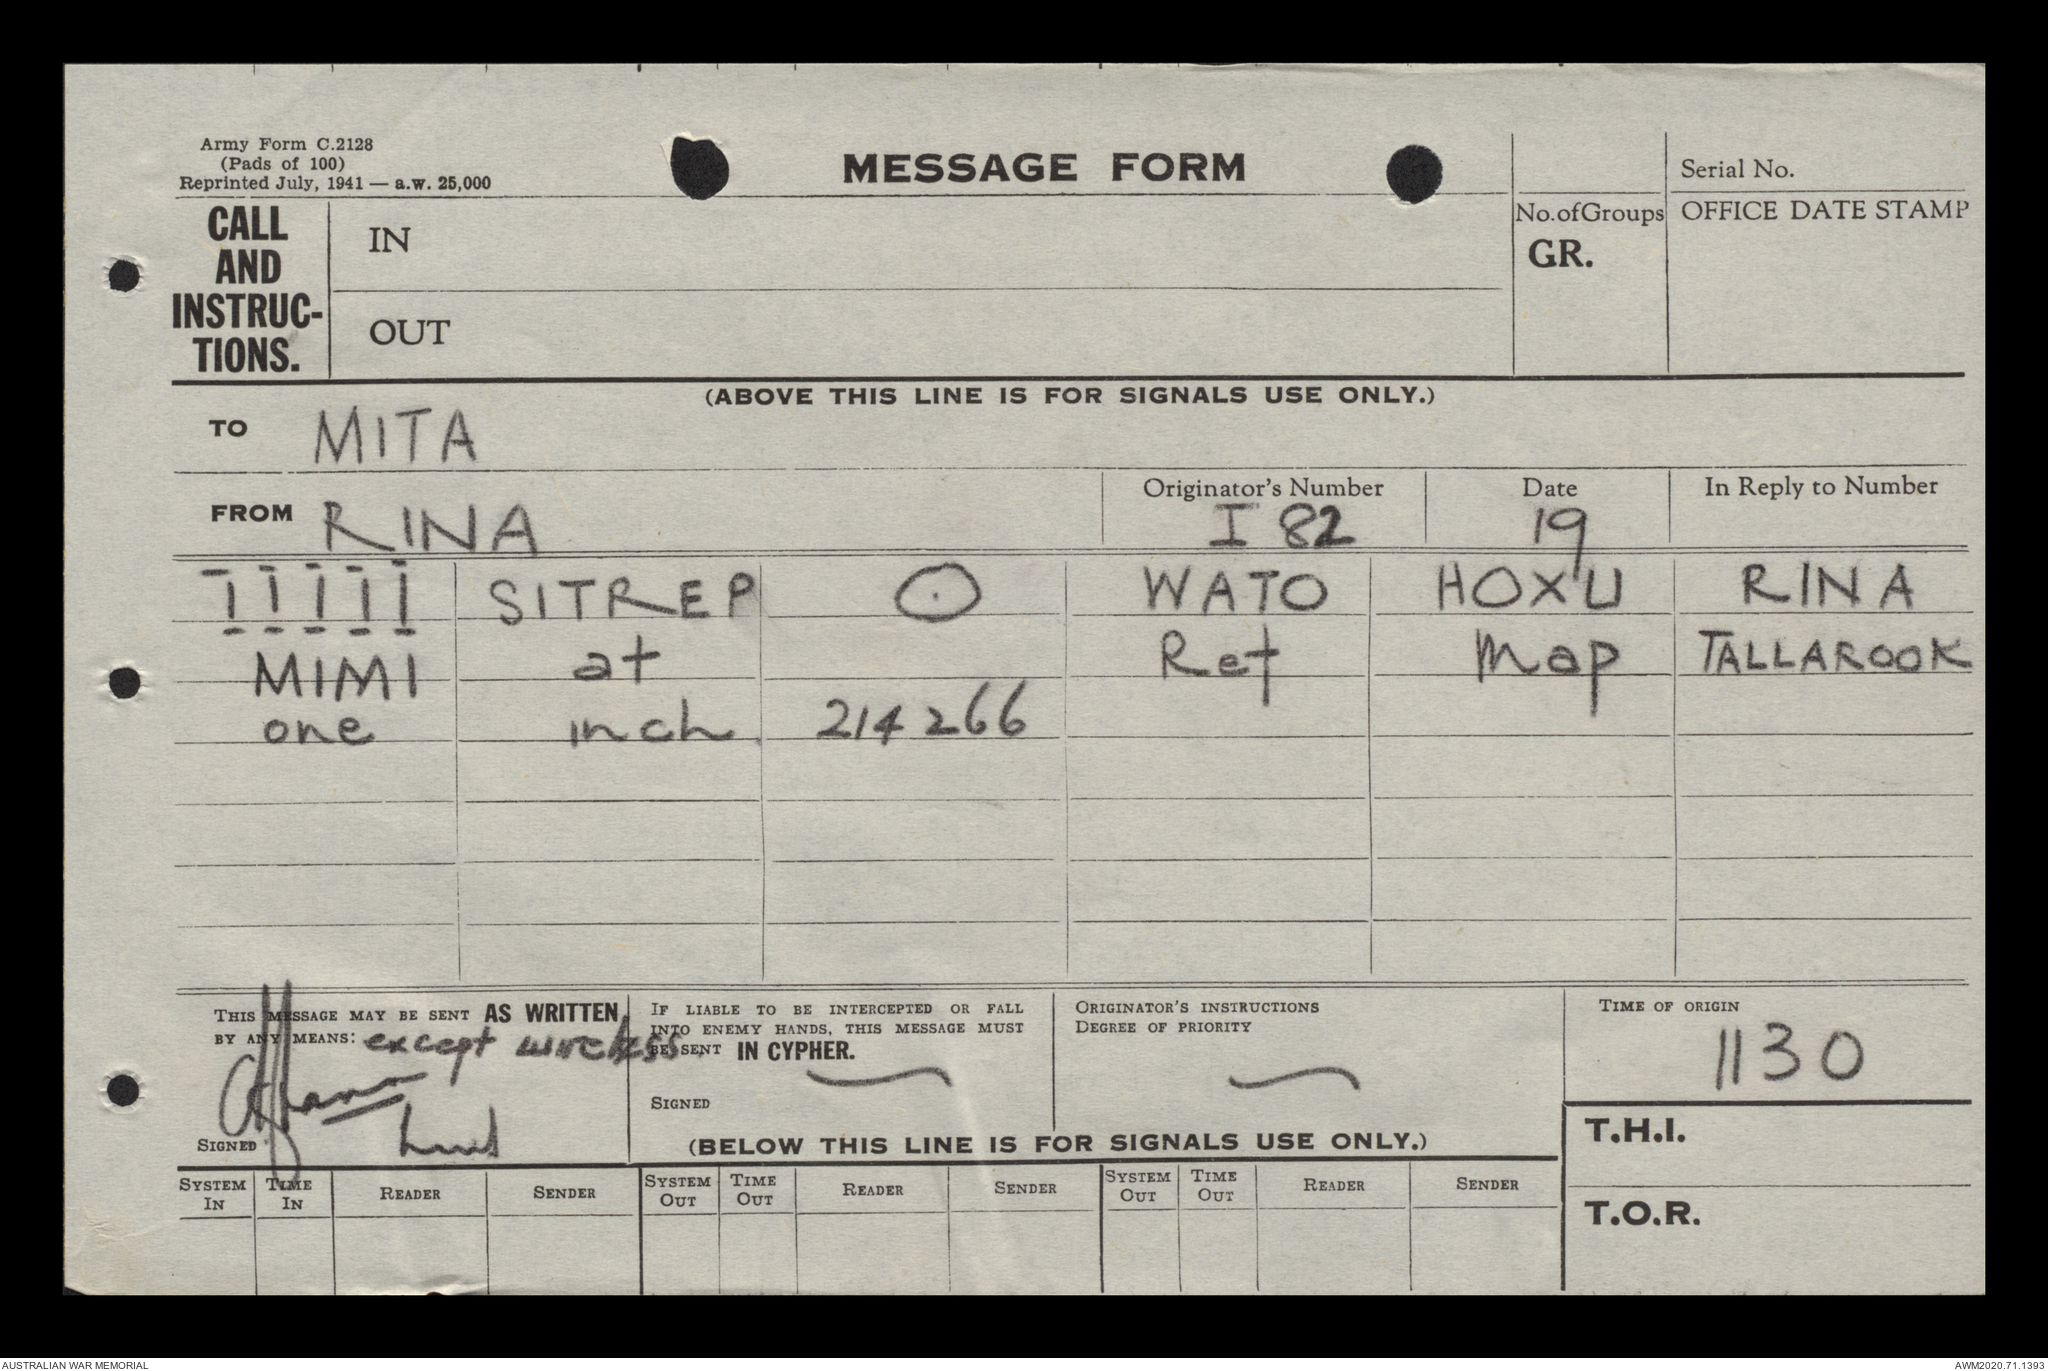 Army Form C.2128
(Pads of 100)
Reprinted July, 1941 — a.w. 25,000
MESSAGE FORM
Serial No.
CALL AND INSTRUC-TIONS.
IN
OUT
No. of Groups
GR.
OFFICE DATE STAMP
(ABOVE THIS LINE IS FOR SIGNALS USE ONLY.)
TO MITA
FROM RINA
Originator's Number
I 82
Date
19
In Reply to Number
IIIII SITREP ⊙ WATO HOXU RINA
MIMI at Ref Map TALLAROOK
one inch 214266
THIS MESSAGE MAY BE SENT AS WRITTEN
BY ANY MEANS: except wireless
SIGNED
IF LIABLE TO BE INTERCEPTED OR FALL
INTO ENEMY HANDS, THIS MESSAGE MUST
BE SENT IN CYPHER.
SIGNED
ORIGINATOR'S INSTRUCTIONS
DEGREE OF PRIORITY
TIME OF ORIGIN
1130
(BELOW THIS LINE IS FOR SIGNALS USE ONLY.)
T.H.I.
T.O.R.
SYSTEM IN TIME IN READER SENDER SYSTEM OUT TIME OUT READER SENDER SYSTEM OUT TIME OUT READER SENDER
AUSTRALIAN WAR MEMORIAL
AWM2020.71.1393